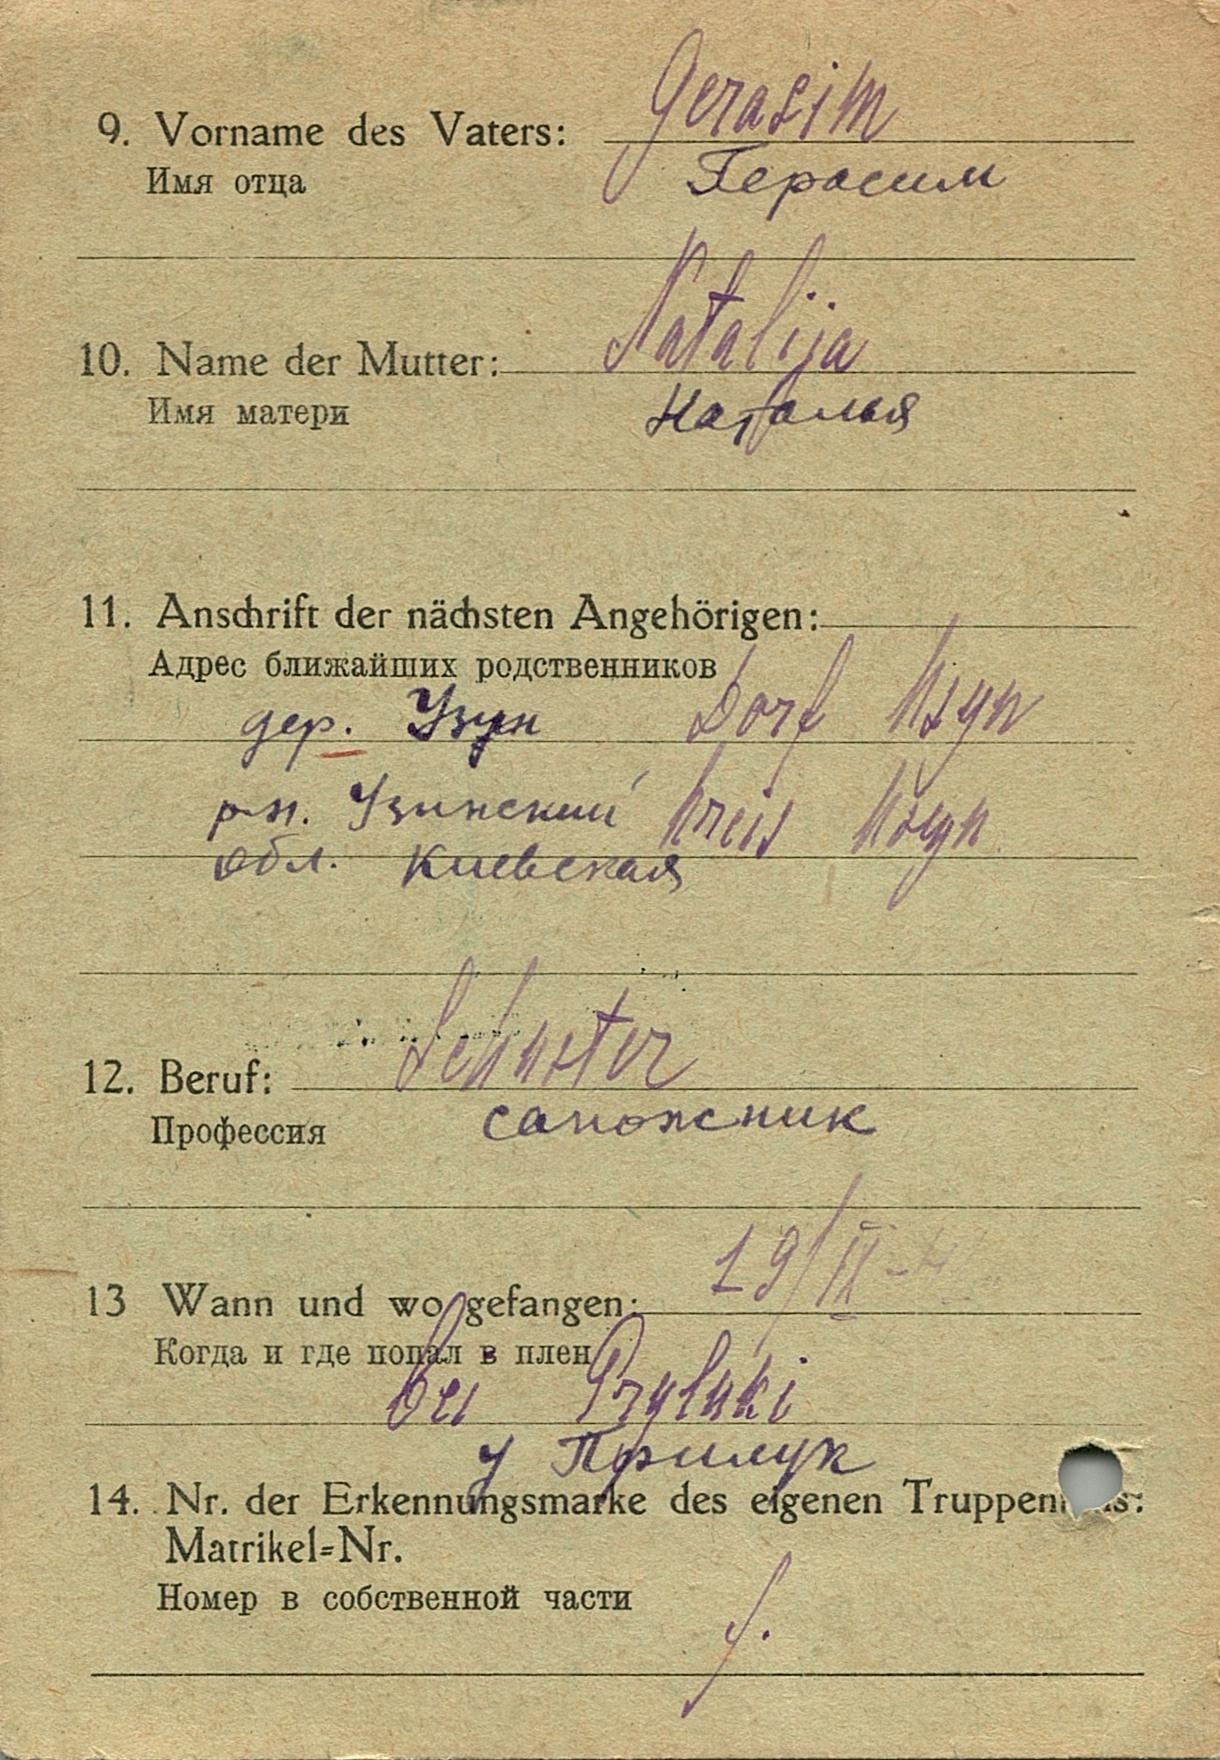 Gerasim
9. Vorname des Vaters:
Имя отца
Герасим
Natalija
10. Name der Mutter:
Имя матери
Наталья
11. Anschrift der nächsten Angehörigen:
Адрес ближайших родственников
дер. Узун Dorf Usyn
р-н. Узинский Kreis Usyn
обл. Киевская
Schuster
12. Beruf:
Профессия
сапожник
19/II-
13 Wann und wo gefangen:
Когда и где попал в плен
bei Pryluki
у Прилук
14. Nr. der Erkennungsmarke des eigenen
Matrikel=Nr.
Номер в собственной части